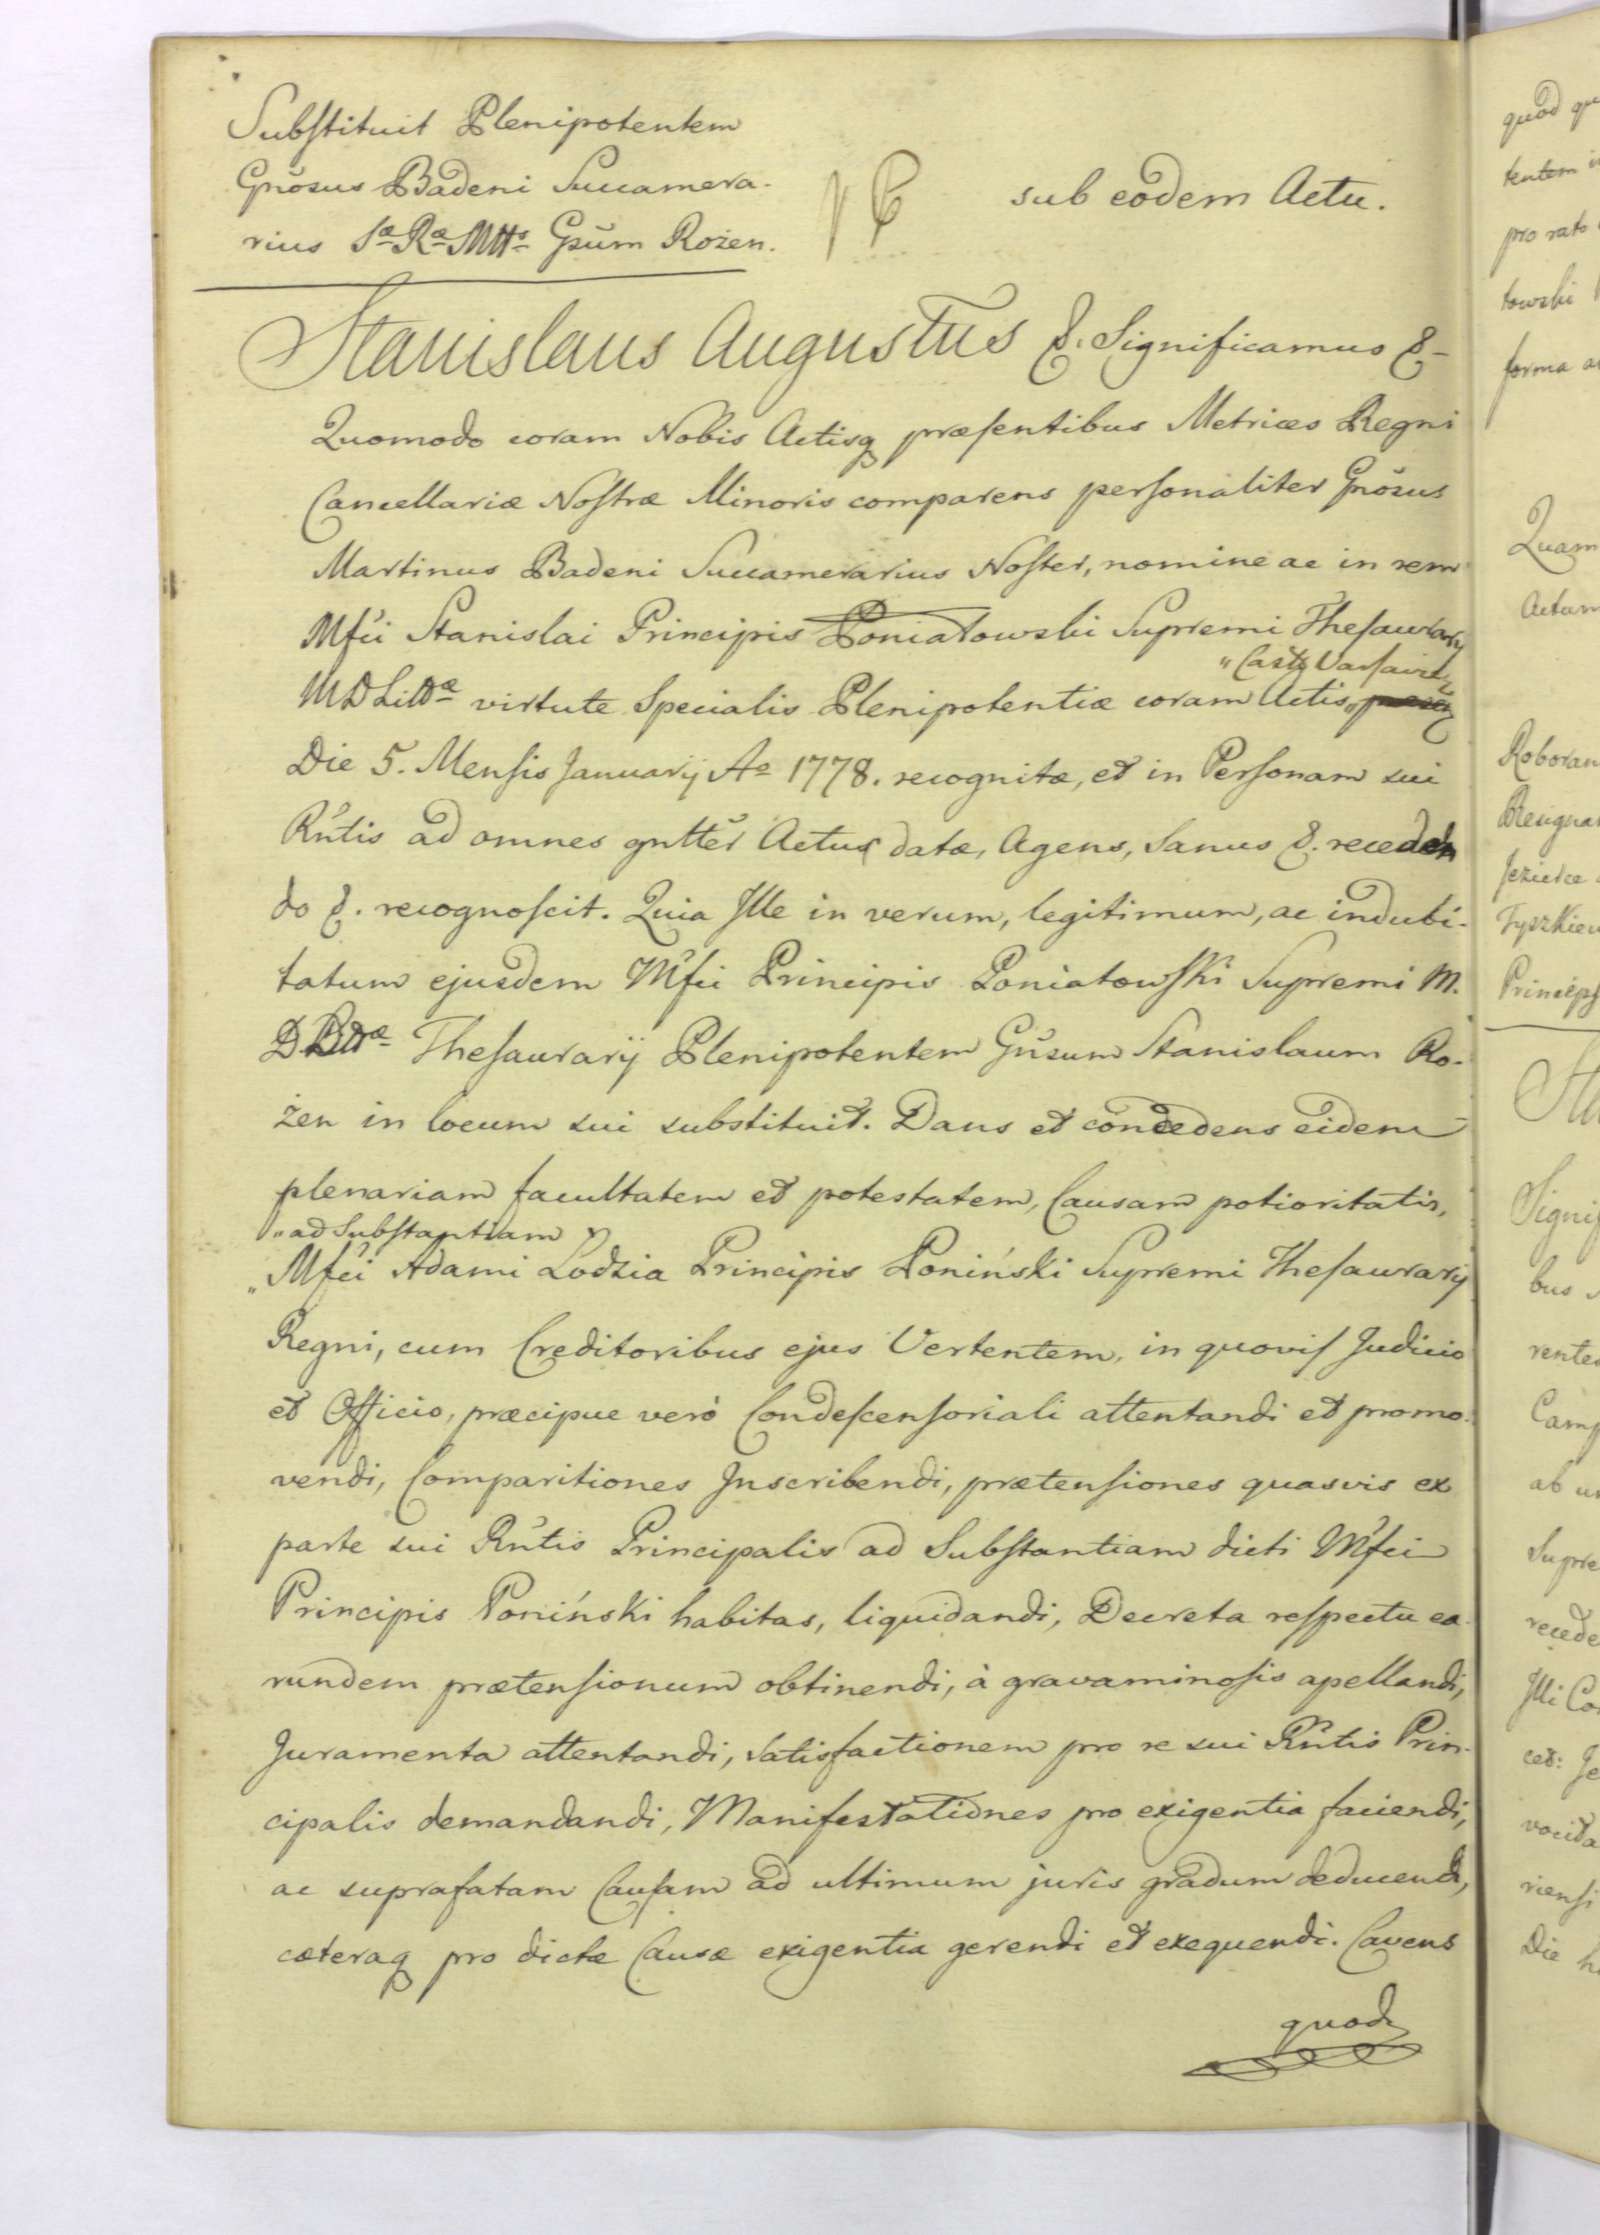 Substituit Plenipotentem
Gnosus Badeni Succamera-
rius Sæ Ræ Mttis Gsum Rożen.
sub eodem Actu.
Stanislaus Augustus &. Significamus &-
Quomodo coram Nobis Actisq præsentibus Metrices Regni
Cancellariæ Nostræ Minoris comparens personaliter Gnosus
Martinus Badeni Succamerarius Noster, nomine ac in rem
Mfci Stanislai Principis Poniatowski Supremi Thesaurarij
MDLittæ virtute Specialis Plenipotentiæ coram Actis
Die 5. Mensis Januarij Ao 1778. recognitæ, et in Personam sui
Rntis ad omnes gntter Actus datæ, Agens, Sanus &. receden
do &. recognoscit. Quia Ille in verum, legitimum, ac indubi-
tatum ejusdem Mfci Principis Poniatowski Supremi M.
D Littæ Thesaurarij Plenipotentem Gnsum Stanislaum Ro-
żen in locum sui substituit. Dans et concedens eidem
plenariam facultatem et potestatem, Causam potioritatis,
"ad Substantiam
"Mfci Adami Lodzia Principis Poniński Supremi Thesaurarij
Regni, cum Creditoribus ejus Vertentem, in quovis Judicio
et Officio, præcipue verò Condescensoriali attentandi et promo-
vendi, Comparitiones Inscribendi, prætensiones quasvis ex
parte sui Rntis Principalis ad Substantiam dicti Mfci
Principis Poniński habitas, liquidandi, Decreta respectu ea-
rundem prætensionum obtinendi, à gravaminosis apellandi,
Juramenta attentandi, satisfactionem pro re sui Rntis Prin-
cipalis demandandi, Manifestationes pro exigentia faciendi,
ac suprafatam Causam ad ultimum juris gradum deducendi,
cæteraq pro dictæ Causæ exigentia gerendi et exequendi. Cavens
quod